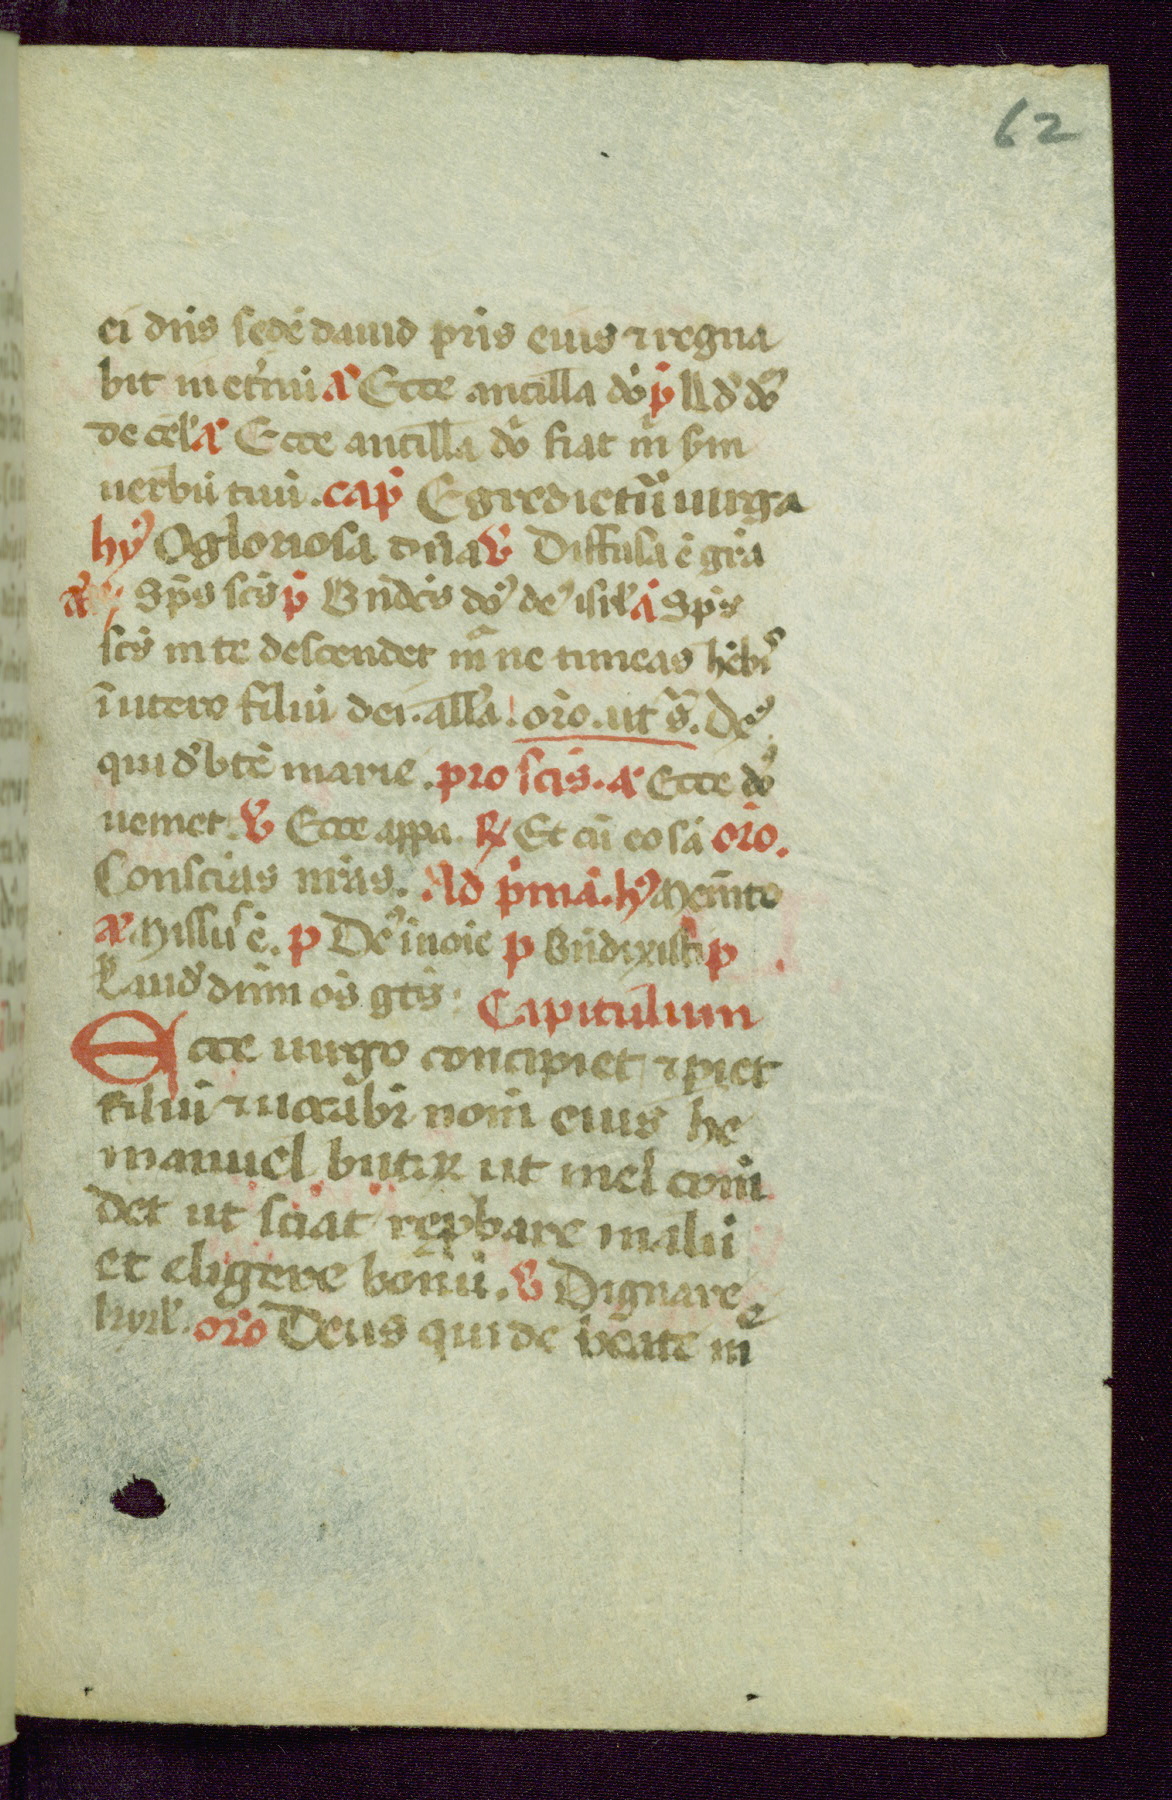 62
ei dn̄s sedē dauid pr̄is eius ⁊ regna
bit in et̄nū a̅ Ecce ancilla do̅ p̅ Lld̓ do̅
de cel̓ a̅ Ecce ancilla do̅ fiat m̄ s̄m
uerbū tuū. cap̄ Egredietur̄ uirga
hy̓ O gloriosa dn̄a v̄ Diffusa ē gr̄a
a̅ Sp̄s sc̄s p̄ Bn̄dc̄s do̅ de̓ isr̄l a̅ Sp̄s
sc̄s in te descendet m̄ ne timeas hēb̓
ī utero filiū dei. all̄a. or̄o. ut s̄. De̓
qui d̓ btē marie. pro sc̄is. a̅ Ecce do̅
ueniet. v̄ Ecce appa. R̷ Et cū eo sā or̄o.
Conscīas nr̄as. Ad p̄mā. hy̓ Mem̄to
a̅ Missu̓ ē. p De̓ ī noīe p Bn̄dixisti p
Laud̓ dn̄m om̄s gt̄s. Capitulum
Ecce uirgo concipiet ⁊ p̱iet
filiū ⁊ uocābi nom̄ eius he
manuel butiꝝ ut mel com̄
det ut sciat rep̱bare malū
et eligere bonū. v̄ Dignare
kyrł. or̄o Deus qui de b̄eate m̄